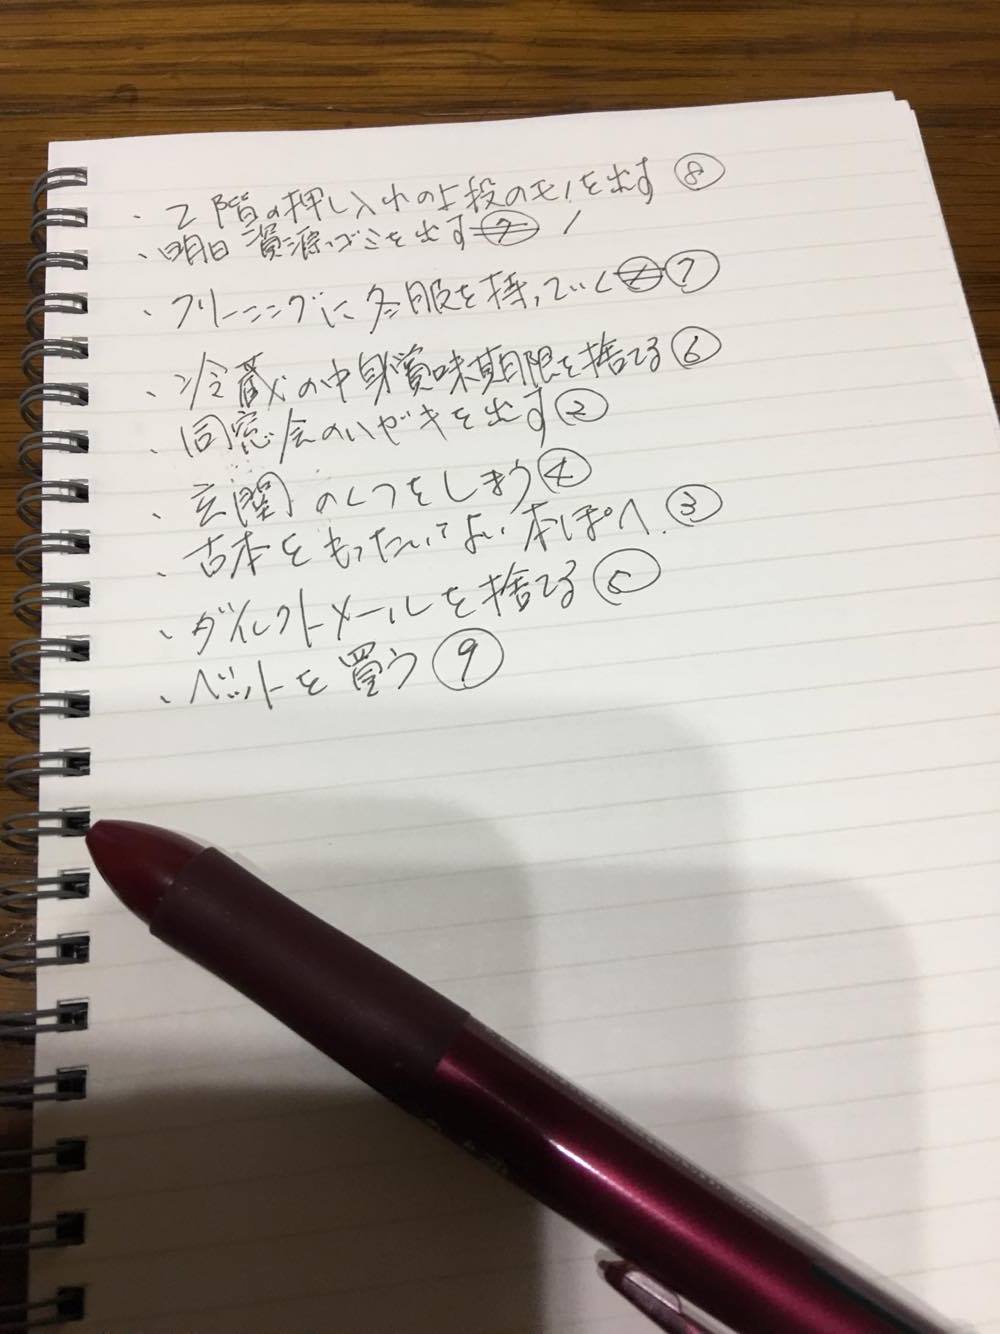 ・2階の押し入れの上段のモノを出す ⑧
・明日資源ゴミを出す 1
・クリーニングに冬服を持っていく ⑦
・冷蔵の中身賞味期限を捨てる ⑥
・同窓会のハガキを出す ②
・玄関のくつをしまう ④
・古本をもったいない本ぽへ. ③
・ダイレクトメールを捨てる ⑤
・ベットを買う ⑨